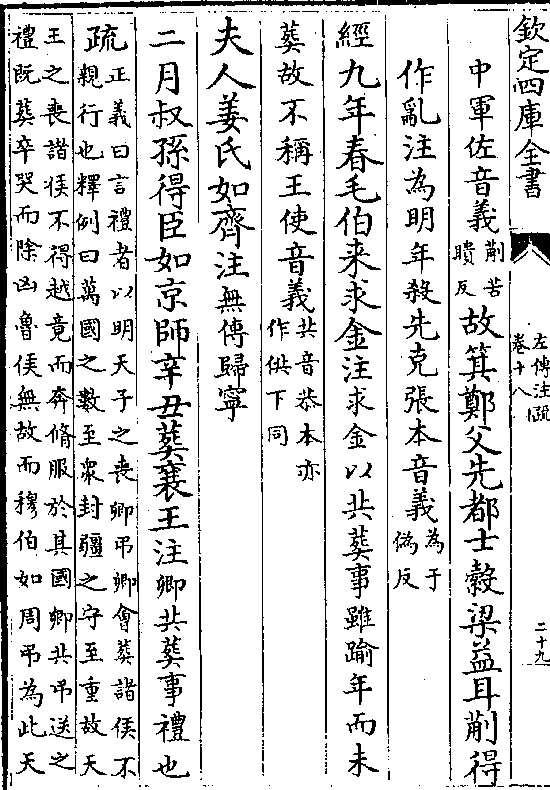 欽定四庫全書
左傳注疏
卷十八
二十九
中軍佐音義蒯苦
聵反故箕鄭父先都士縠梁益耳蒯得
作亂注為明年殺先克張本音義為于
偽反
經九年春毛伯来求金注求金以共葬事雖踰年而未
葬故不稱王使音義共音恭本亦
作供下同
夫人姜氏如齊注無傳歸寧
二月叔孫得臣如京師辛丑葬襄王注卿共葬事禮也
疏正義曰言禮者以明天子之喪卿弔卿會葬諸侯不
親行也釋例曰萬國之數至衆封疆之守至重故天
王之喪諸侯不得越竟而奔脩服於其國卿共弔送之
禮既葬卒哭而除凶魯侯無故而穆伯如周弔為此天